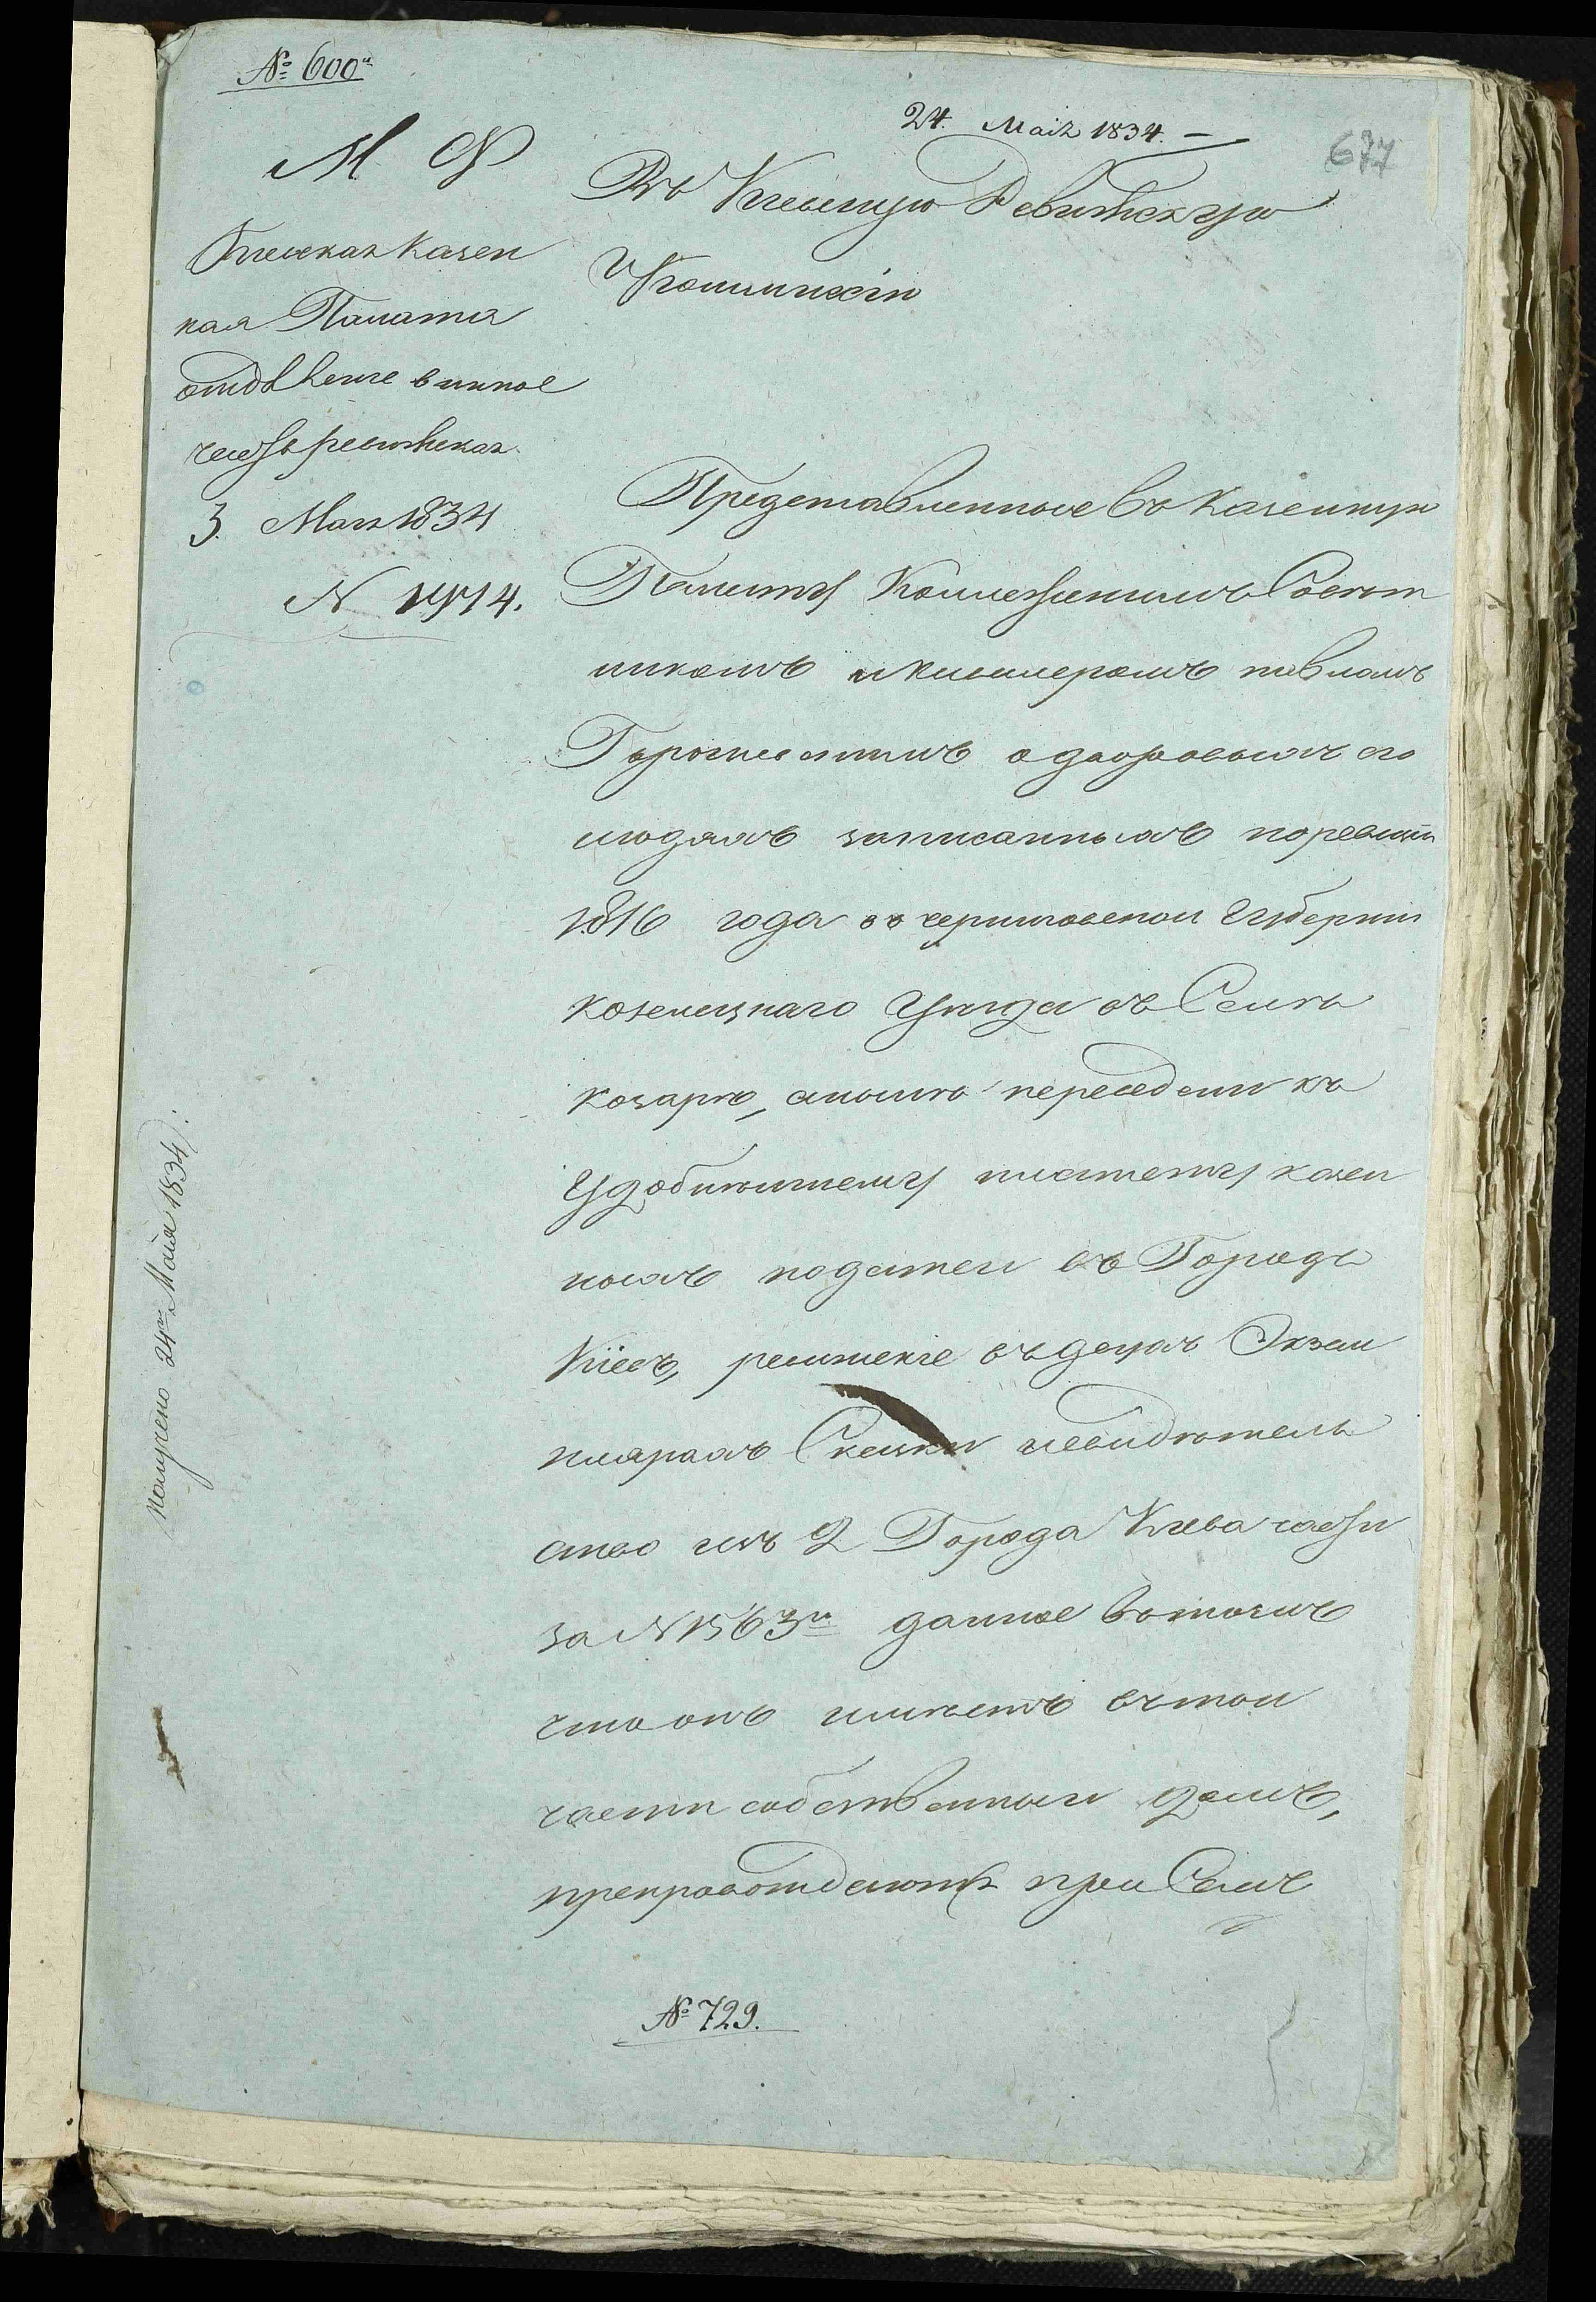 № 600й
24. Маія 1834.
677
М Ф
Кіевская казен
ная Палата
отделеніе винное
часть ревижская
3. Мая 1834
N 1914.
Въ Кіевскую Ревижскую
Коммиссію
Представленное въ казенную
Палату Коллежскимъ Совет
никомъ и кавалеромъ павломъ
о дворовыхъ его
людяхъ записанныхъ поревизіи
1816 года въ черниговской Губерніи
козелецкаго Уѣзда въ Селѣ
козарѣ, аныне переведени къ
Удобнѣйшему платежу казен
ныхъ податей въ Городъ
Кіевъ, ревижскіе въ двухъ Экзем
пларахъ Скаски исвидѣтель
ство изъ 2 Города Кіева части
за N 1563м данное вътомъ
что онъ имѣетъ въ той
части собственный домъ,
препровождаютъ при Семъ
№ 729.
получено 24го Маія 1834